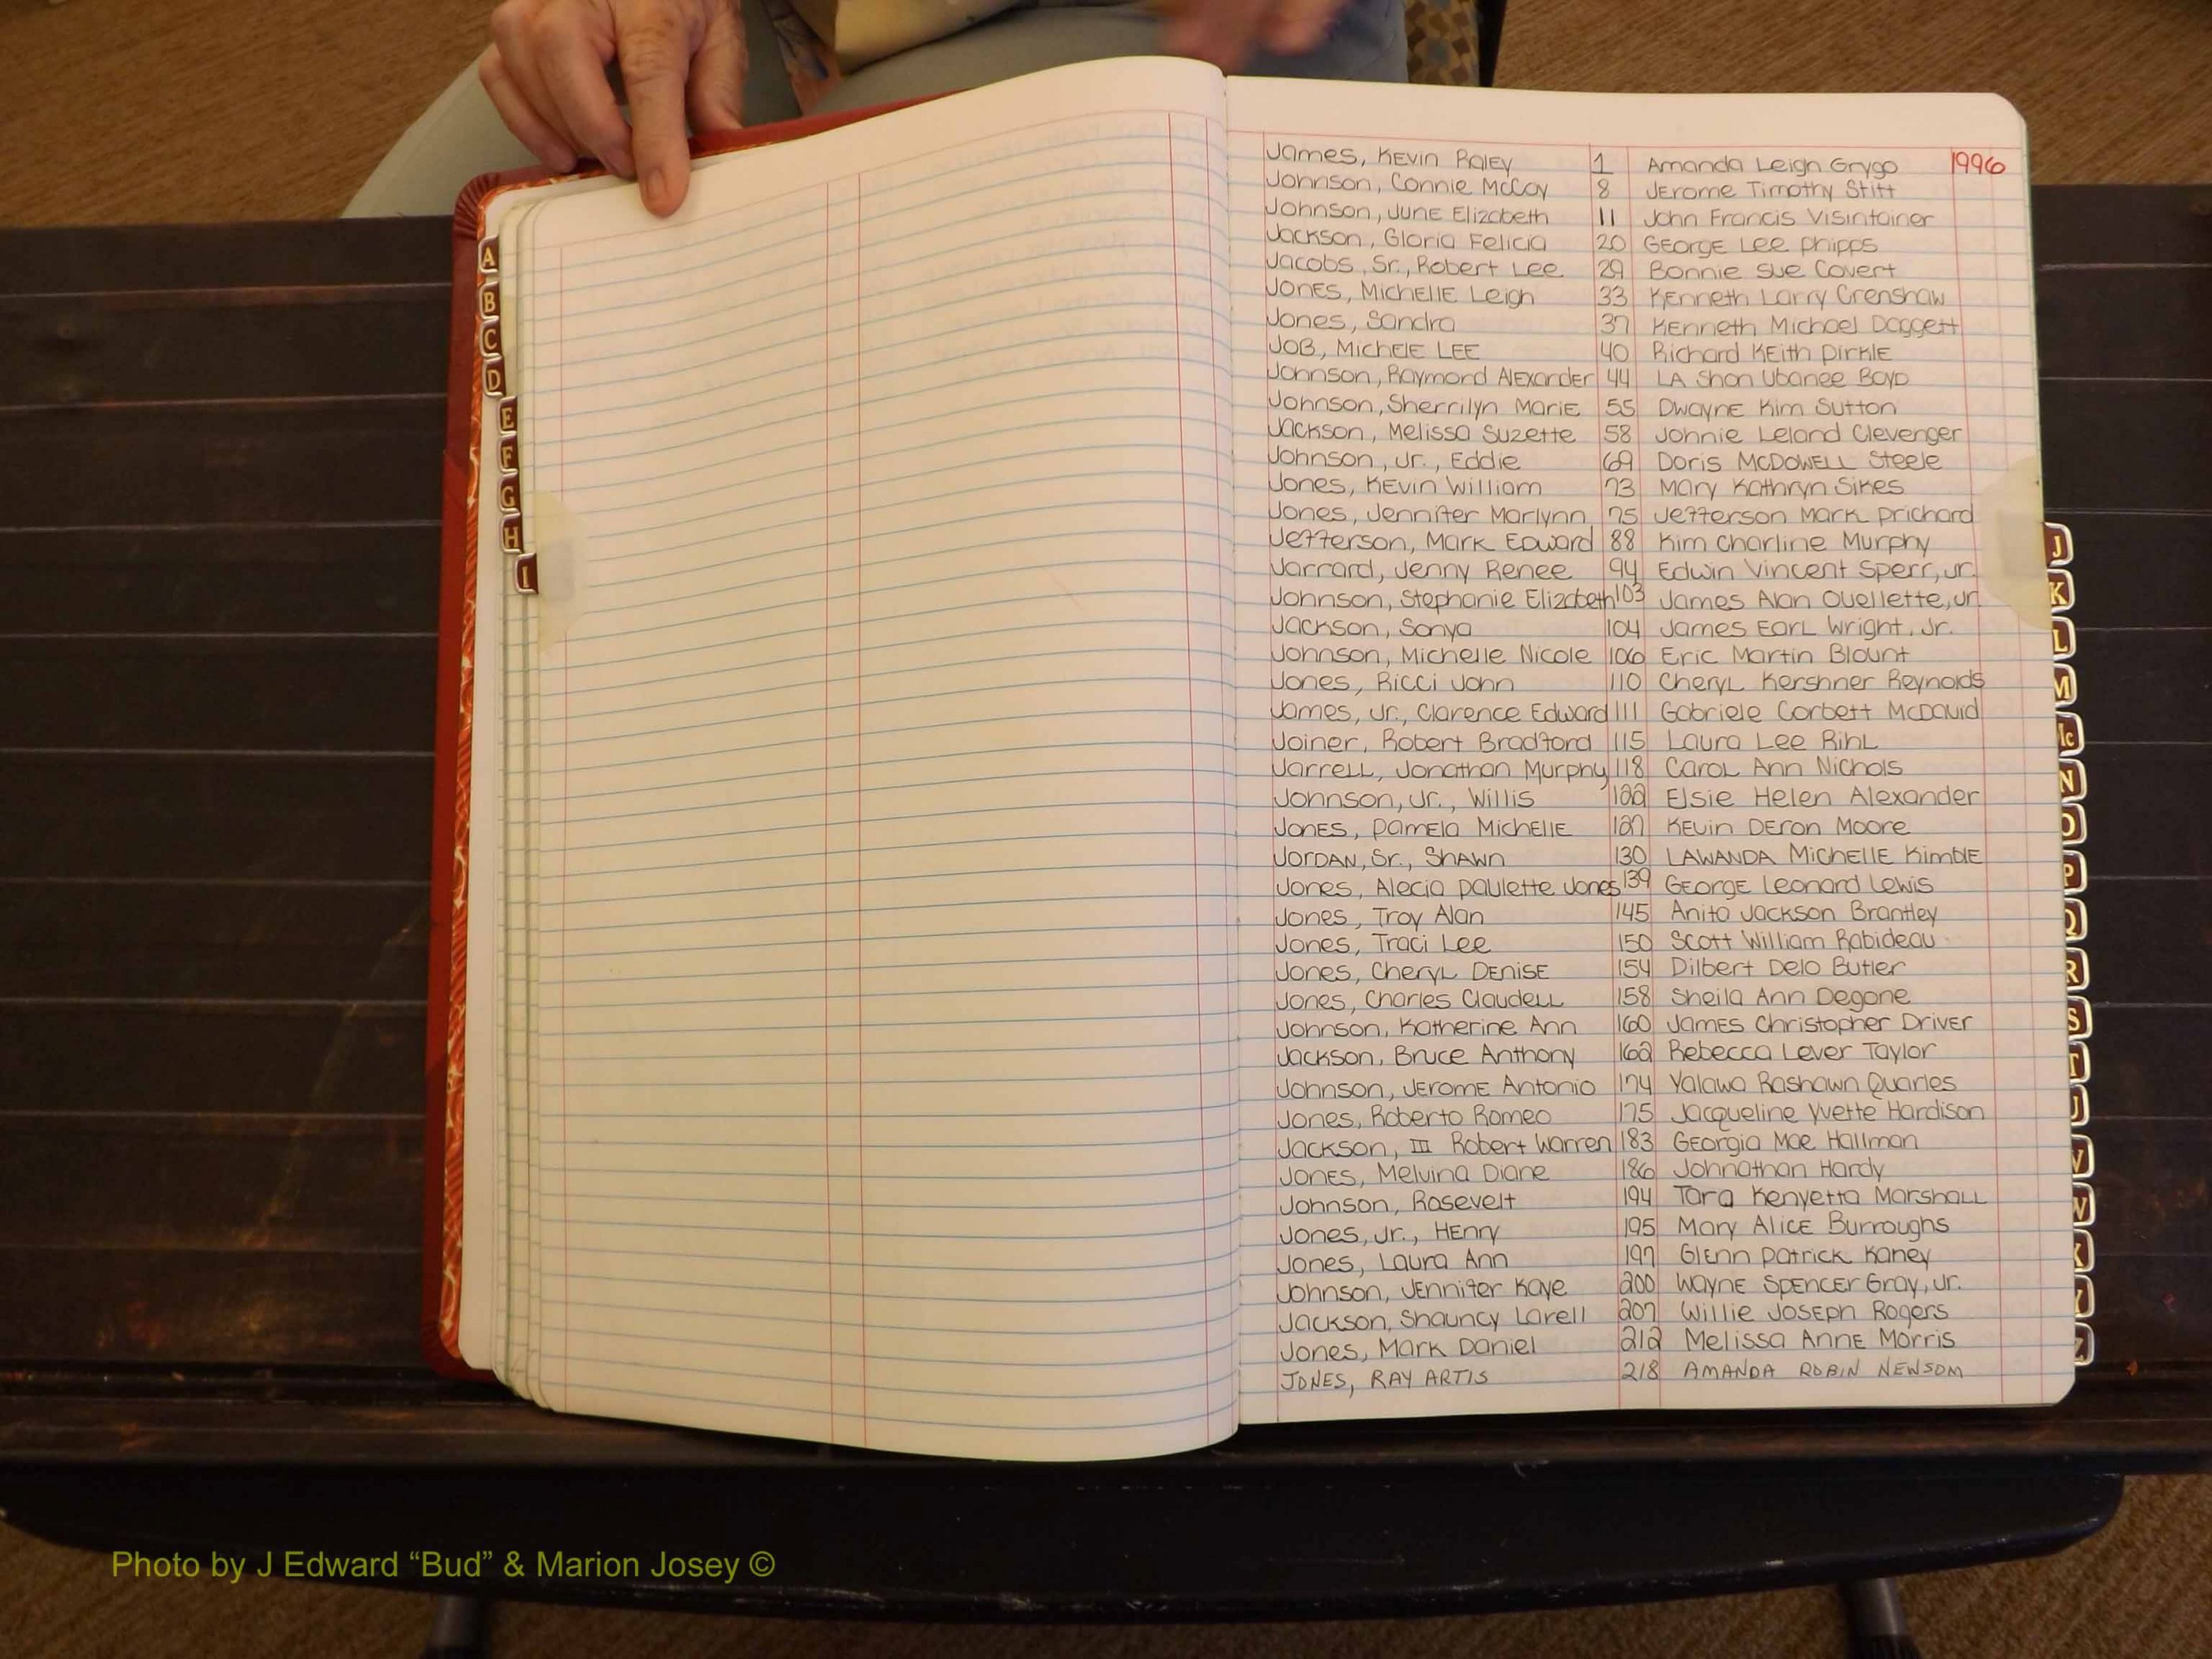 James, Kevin Raley 1 Amanda Leigh Grygo 1996
Johnson, Connie McCoy 8 Jerome Timothy Stitt
Johnson, June Elizabeth 11 John Francis Visintainer
Jackson, Gloria Felicia 20 George Lee Phipps
Jacobs, Sr., Robert Lee 29 Bonnie Sue Covert
Jones, Michelle Leigh 33 Kenneth Larry Crenshaw
Jones, Sandra 37 Kenneth Michael Daggett
Job, Michele Lee 40 Richard Keith Dirkle
Johnson, Raymond Alexander 44 La Shon Ubanee Boyd
Johnson, Sherrilyn Marie 55 Dwayne Kim Sutton
Jackson, Melissa Suzette 58 Johnie Leland Clevenger
Johnson, Jr., Eddie 69 Doris McDowell Steele
Jones, Kevin William 73 Mary Kathryn Sikes
Jones, Jennifer Marlynn 75 Jefferson Mark Prichard
Jefferson, Mark Edward 88 Kim Charline Murphy
Jarrard, Jenny Renee 94 Edwin Vincent Sperr, Jr.
Johnson, Stephanie Elizabeth 103 James Alan Ouellette, Jr.
Jackson, Sonya 104 James Earl Wright, Jr.
Johnson, Michelle Nicole 106 Eric Martin Blount
Jones, Ricci John 110 Cheryl Kershner Reynolds
James, Jr., Clarence Edward 111 Gabriele Corbett McDavid
Joiner, Robert Bradford 115 Laura Lee Rihl
Jarrell, Jonathan Murphy 118 Carol Ann Nichols
Johnson, Jr., Willis 122 Elsie Helen Alexander
Jones, Pamela Michelle 127 Kevin Deron Moore
Jordan, Sr., Shawn 130 Lawanda Michelle Kimble
Jones, Alecia Paulette Jones 139 George Leonard Lewis
Jones, Troy Alan 145 Anita Jackson Brantley
Jones, Traci Lee 150 Scott William Rabideau
Jones, Cheryl Denise 154 Dilbert Delo Butler
Jones, Charles Claudell 158 Sheila Ann Degone
Johnson, Katherine Ann 160 James Christopher Driver
Jackson, Bruce Anthony 162 Rebecca Lever Taylor
Johnson, Jerome Antonio 174 Yalawa Rashawn Quarles
Jones, Roberto Romeo 175 Jacqueline Yvette Hardison
Jackson, III Robert Warren 183 Georgia Mae Hallman
Jones, Melvina Diane 186 Johnathan Hardy
Johnson, Rosevelt 194 Tara Kenyetta Marshall
Jones, Jr., Henry 195 Mary Alice Burroughs
Jones, Laura Ann 197 Glenn Patrick Kaney
Johnson, Jennifer Kaye 200 Wayne Spencer Gray, Jr.
Jackson, Shauncy Larell 207 Willie Joseph Rogers
Jones, Mark Daniel 212 Melissa Anne Morris
JONES, RAY ARTIS 218 AMANDA ROBIN NEWSOM
A
B
C
D
E
F
G
H
I
J
K
L
M
Mc
N
O
P
Q
R
S
T
V
W
Y
Z
Photo by J Edward “Bud” & Marion Josey ©